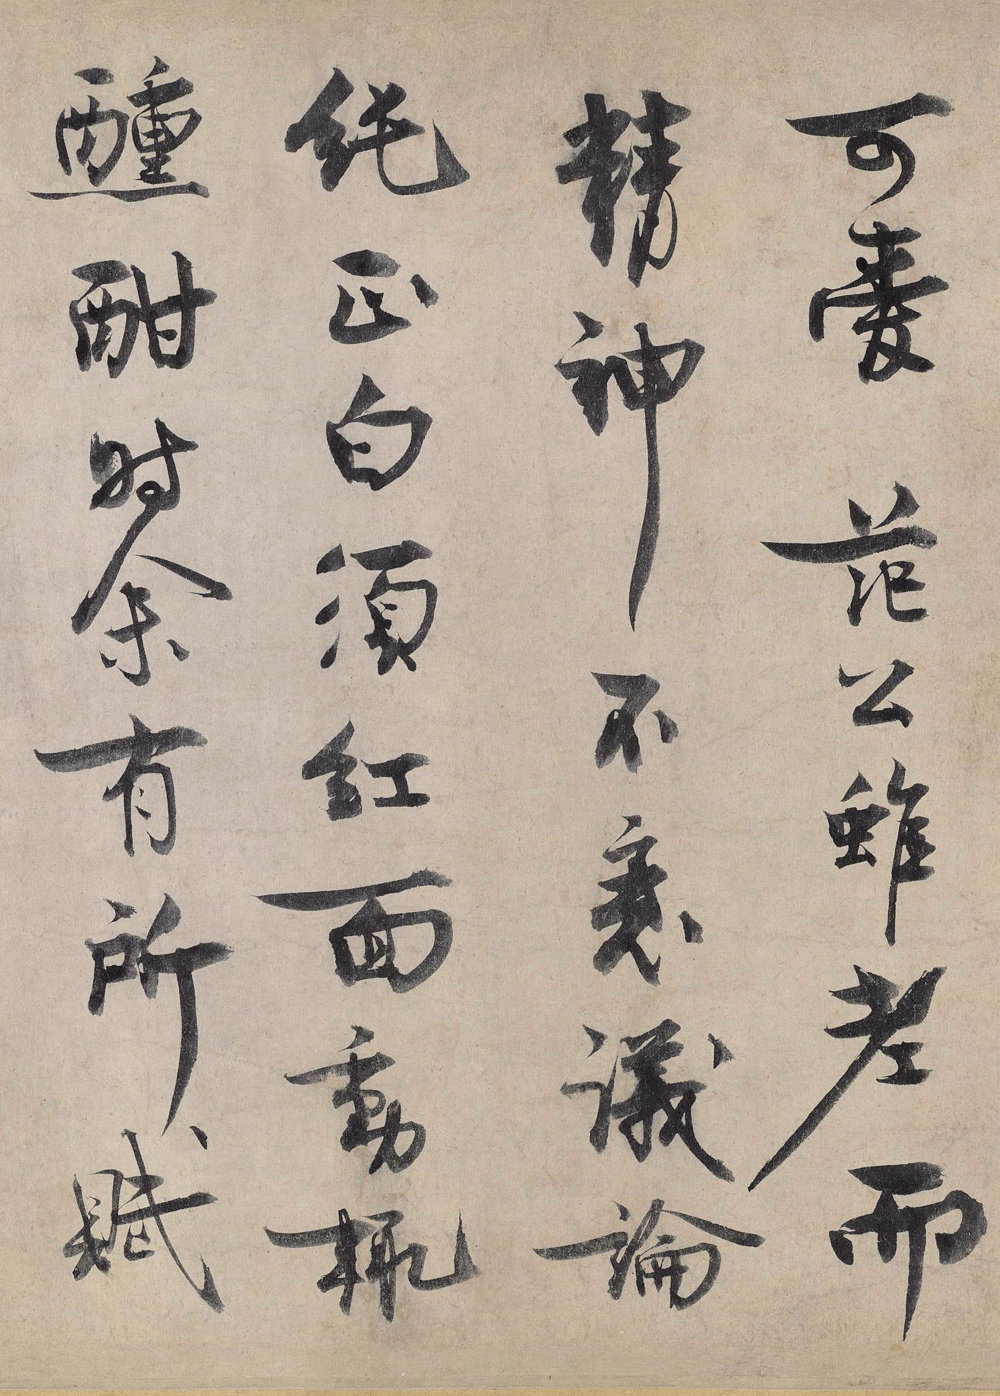 可愛范公雖老而
精神不衰議論
純正白須紅面動輒
醺酣時余有所賦